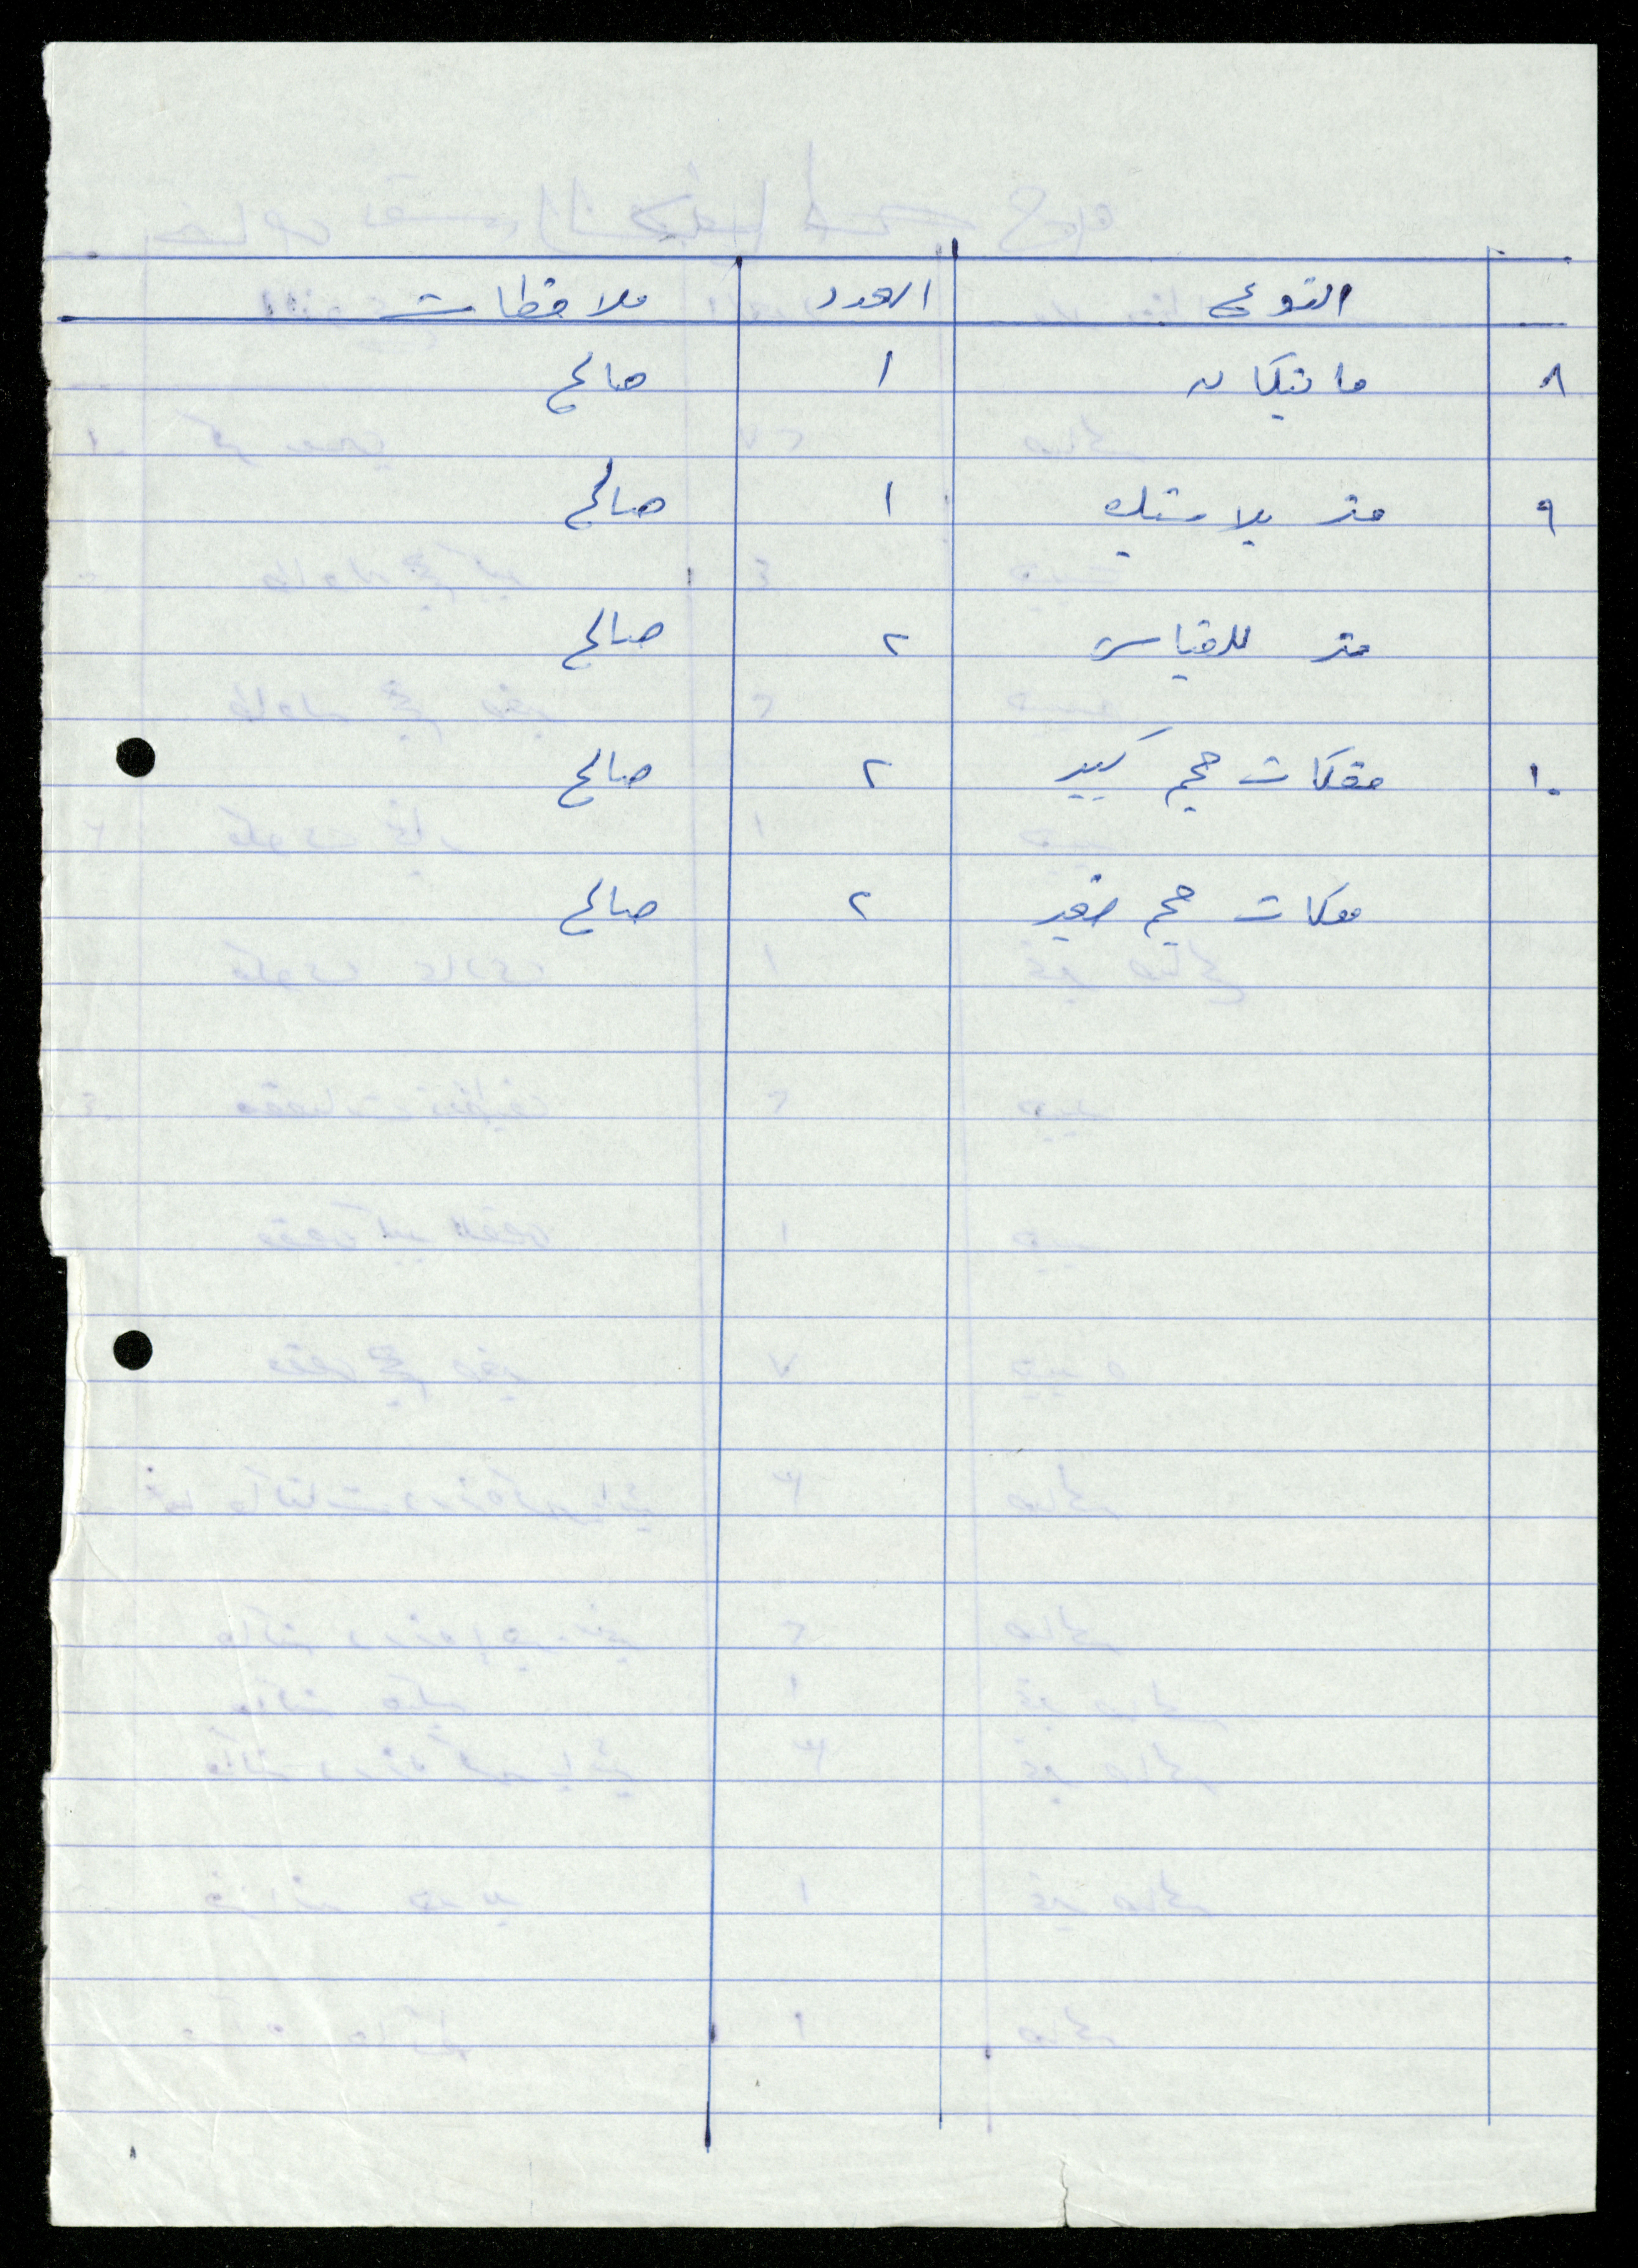 النوع العدد ملاحظات
٨ مانيكان ١ صالح
٩ متر بلاستيك ١ صالح
متر للقياس ٢ صالح
١٠ مفكات حجم كبير ٢ صالح
مفكات حجم صغير ٢ صالح